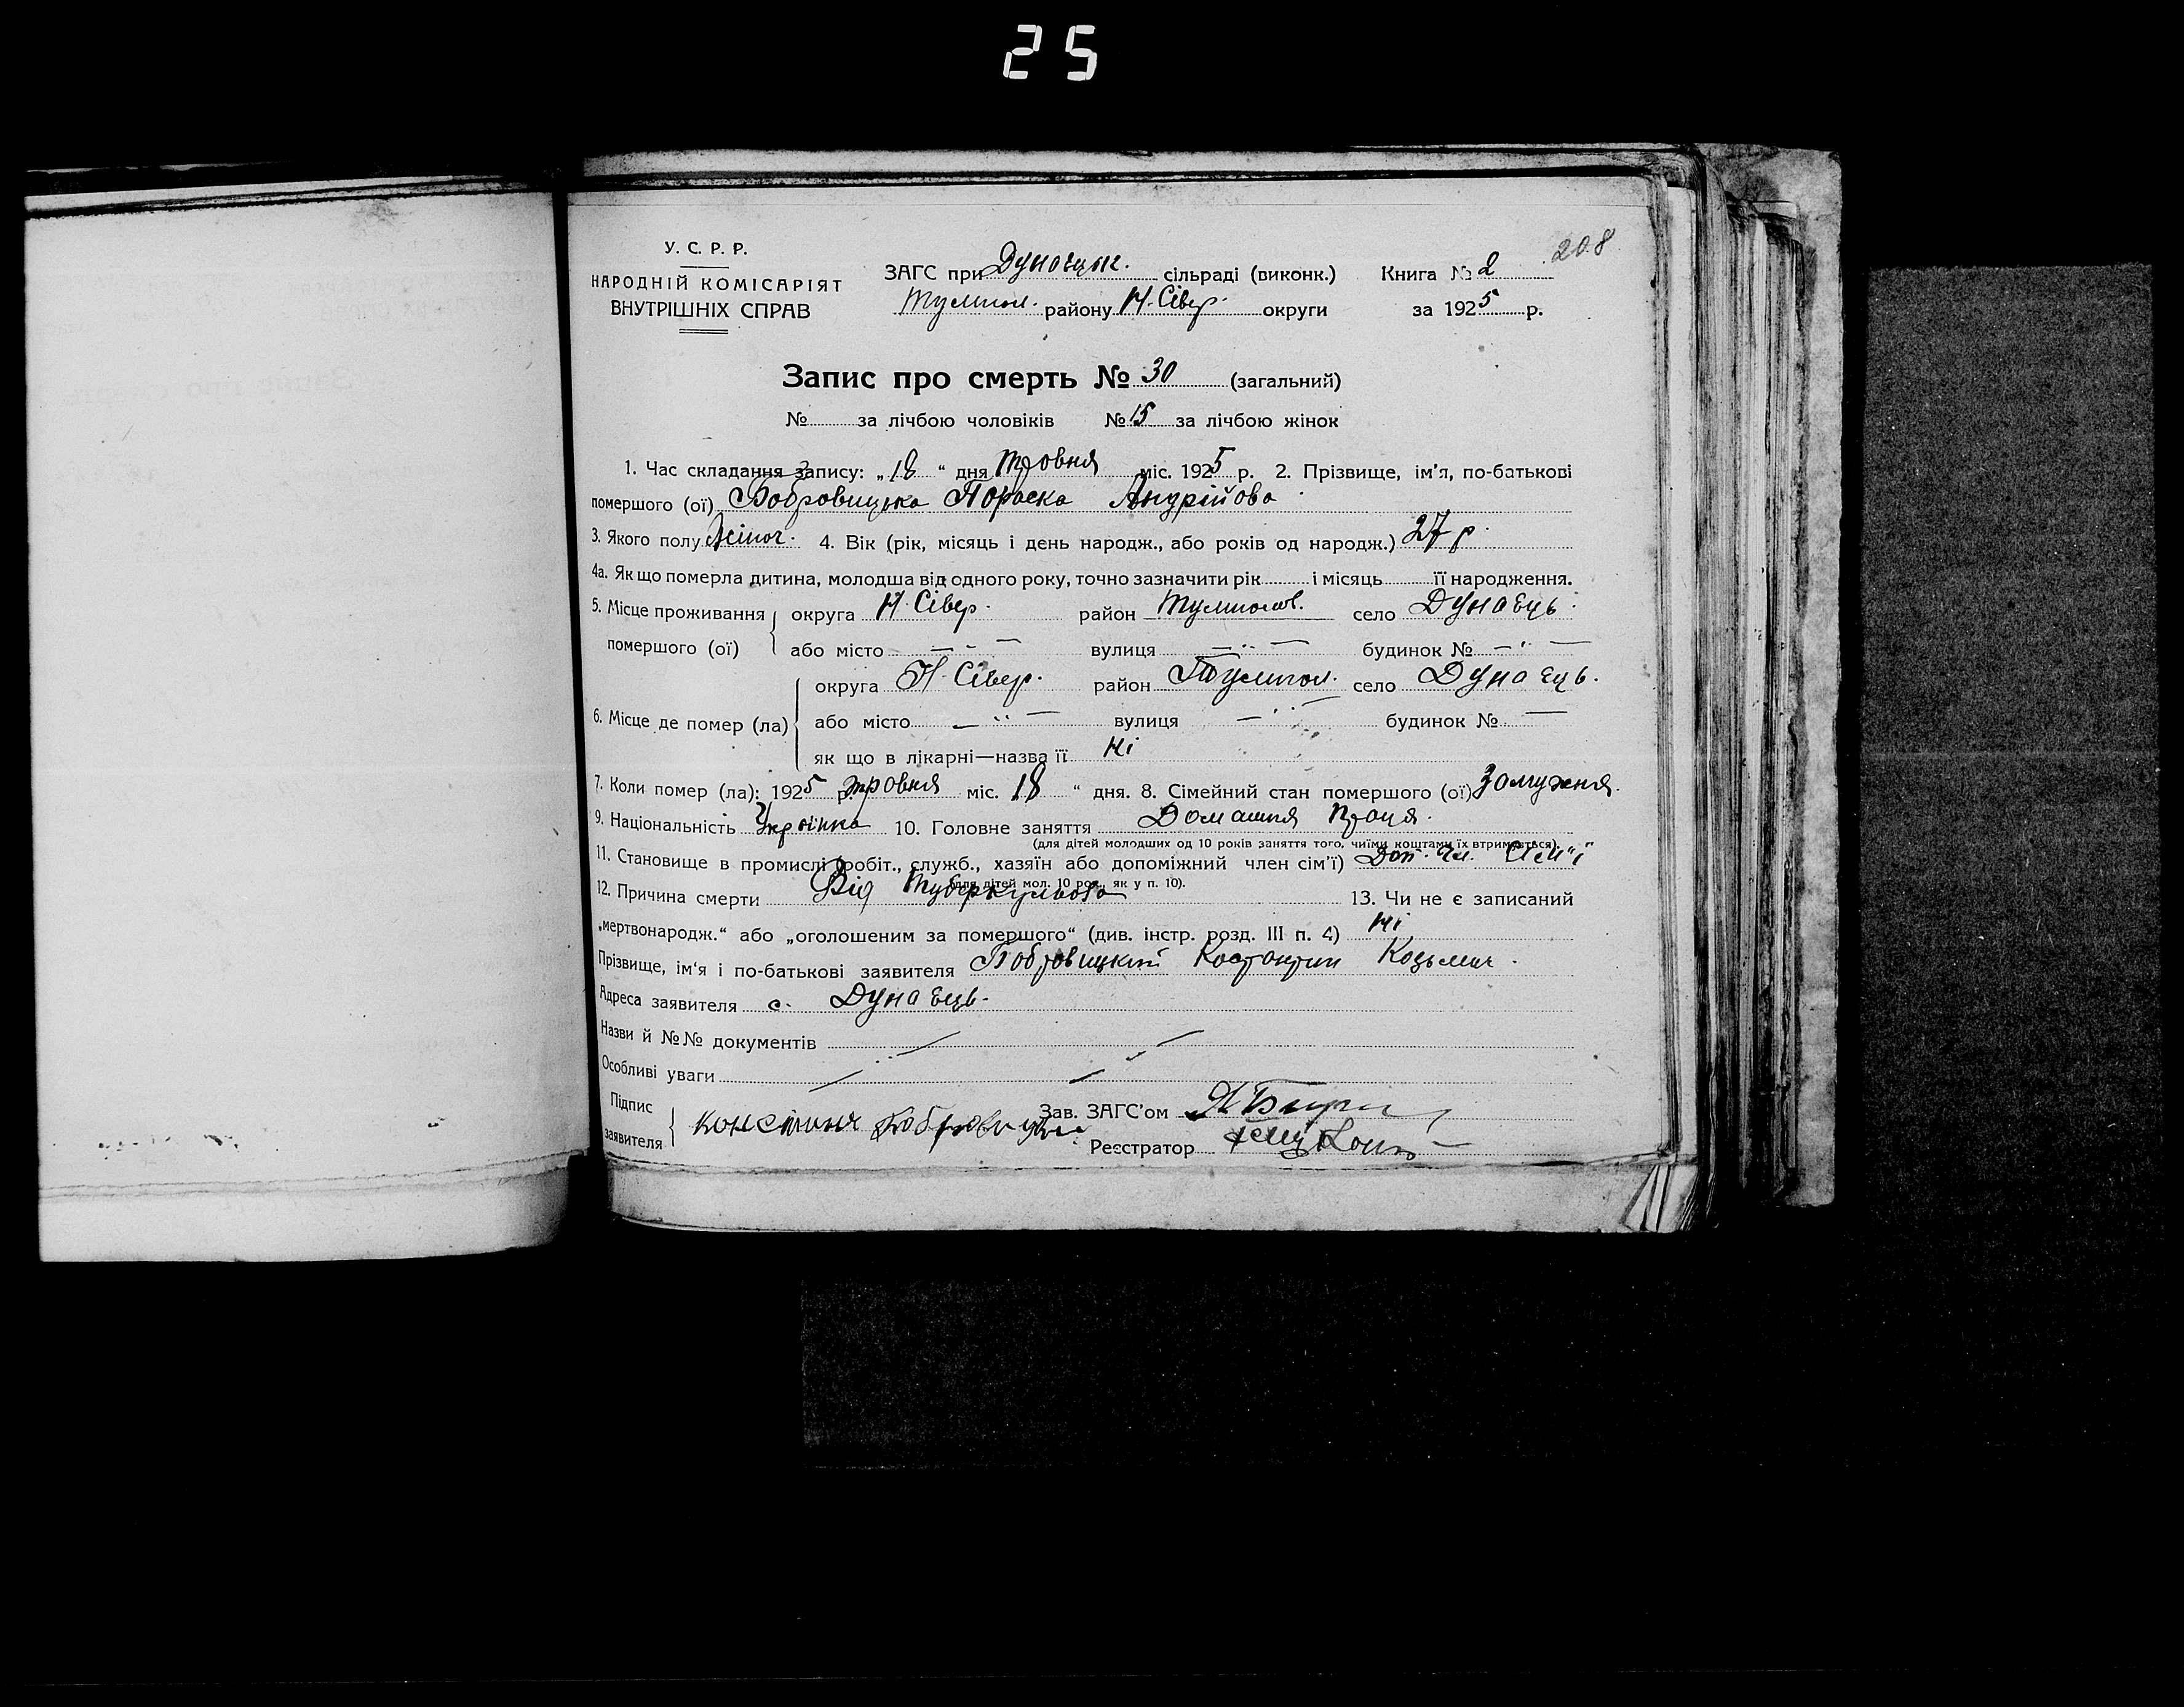 25
208
У. С. Р. Р.
НАРОДНІЙ КОМІСАРІЯТ
ВНУТРІШНІХ СПРАВ
ЗАГС при Дунаєцьк. сільраді (виконк.) Книга № 2
Тулигол. району Н. Сівер. округи за 1925 р.
Запис про смерть № 30 (загальний)
№ за лічбою чоловіків № 15 за лічбою жінок
1. Час складання запису: „18“ дня Травня міс. 1925 р. 2. Прізвище, ім'я, по-батькові
помершого (ої) Бобровицька Параска Андрійова
3. Якого полу Жіноч. 4. Вік (рік, місяць і день народж., або років од народж.) 27 р.
4а. Як що померла дитина, молодша від одного року, точно зазначити рік і місяць її народження.
5. Місце проживання округа Н. Сівер. район Тулиголов. село Дунаєць.
помершого (ої) або місто — " — вулиця — " — будинок № — " —
округа Н. Сівер. район Тулигол. село Дунаєць.
6. Місце де помер (ла) або місто — " — вулиця — " — будинок № —
як що в лікарні—назва її Ні
7. Коли помер (ла): 1925 р. травня міс. 18 “ дня. 8. Сімейний стан помершого (ої) Замужня.
9. Національність Українка 10. Головне заняття Домашня праця.
(для дітей молодших од 10 років заняття того, чиїми коштами їх втримується).
11. Становище в промислі (робіт., служб., хазяїн або допоміжний член сім'ї) Доп. чл. сім'ї
(для дітей мол. 10 рок., як у п. 10).
12. Причина смерти Від Туберкульоза 13. Чи не є записаний
„мертвонародж.“ або „оголошеним за помершого“ (див. інстр. розд. III п. 4) Ні
Прізвище, ім'я і по-батькові заявителя Бобровицкий Костантин Козьмич.
Адреса заявителя с. Дунаєць.
Назви й №№ документів
Особливі уваги
Підпис
заявителя Зав. ЗАГС'ом
Реєстратор